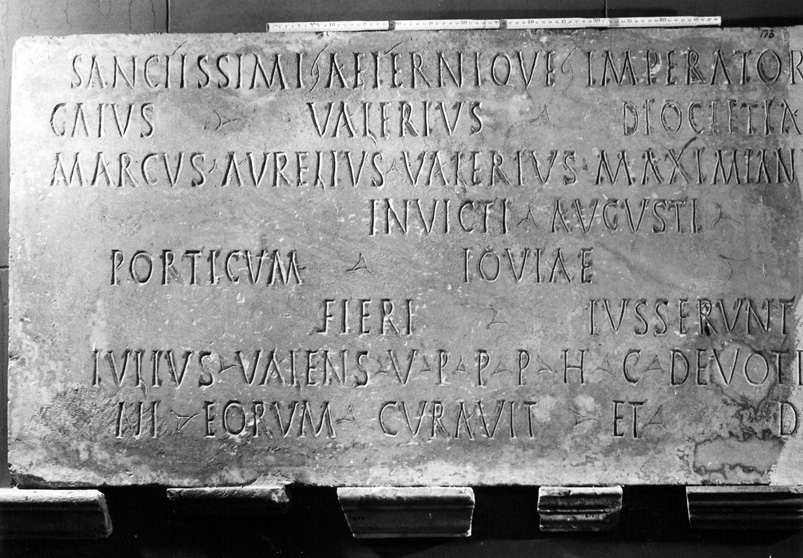 SANCTISSIMI AETERNIQVE IMPERATOR
GAIVS VALERIVS DIOCLETIA
MARCVS AVRELIVS VALERIVS MAXIMIAN
INVICTI AVGVSTI
PORTICVM IOVIAE
FIERI IVSSERVNT
IVLIVS VALENS V P P P H C DEVOTI
IVI EORVM CVRAVIT ET D